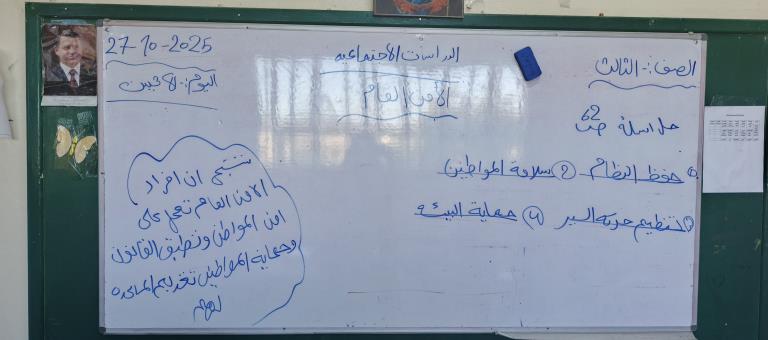 الصف:- الثالث
الدراسات الاجتماعية
27-10-2025
اليوم:- الاثنين
الأمن العام
حل اسئلة ص 62
① حفظ النظام ② سلامة المواطنين
③ تنظيم حركة السير ④ حماية البيئة
نستنتج ان افراد
الامن العام تعمل على
امن المواطن وتطبيق القانون
وحماية المواطنين تقديم المساعدة
لهم